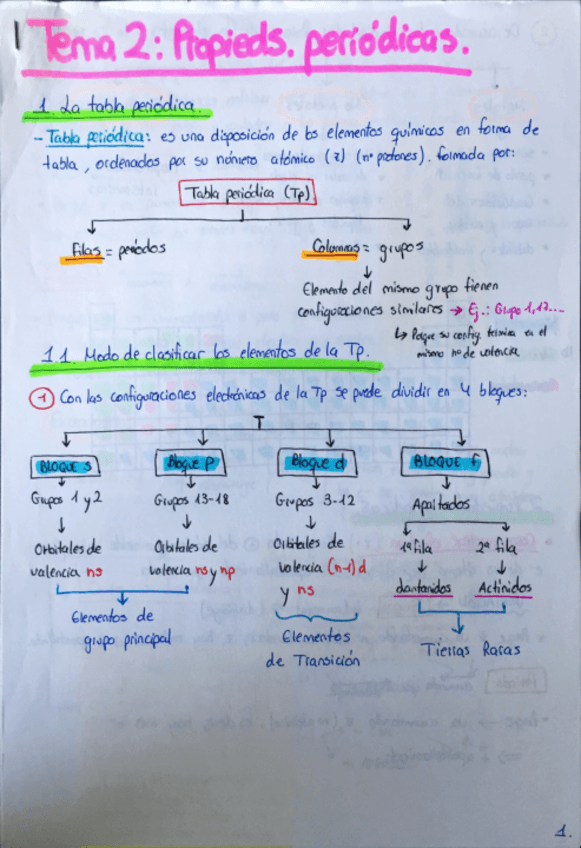 Tema 2: Propieds. periódicas.
1. La tabla periódica.
- Tabla periódica: es una disposición de los elementos químicos en forma de
tabla, ordenados por su número atómico (z) (nº protones). formada por:
Tabla periódica (Tp)
Filas = períodos
Columnas = grupos
Elemento del mismo grupo tienen
configuraciones similares → Ej.: Grupo 1,17...
↳ Porque su config. termina en el
mismo nº de valencia.
1.1. Modo de clasificar los elementos de la Tp.
① Con las configuraciones electrónicas de la Tp se puede dividir en 4 bloques:
BLOQUE s
Bloque p
Bloque d
BLOQUE f
Grupos 1 y 2
Grupos 13-18
Grupos 3-12
Apartados
Orbitales de
valencia ns
Orbitales de
valencia ns y np
Orbitales de
valencia (n-1)d
y ns
1ª fila
2ª fila
lantanidos
Actinidos
Elementos de
grupo principal
Elementos
de Transición
Tierras Raras
1.